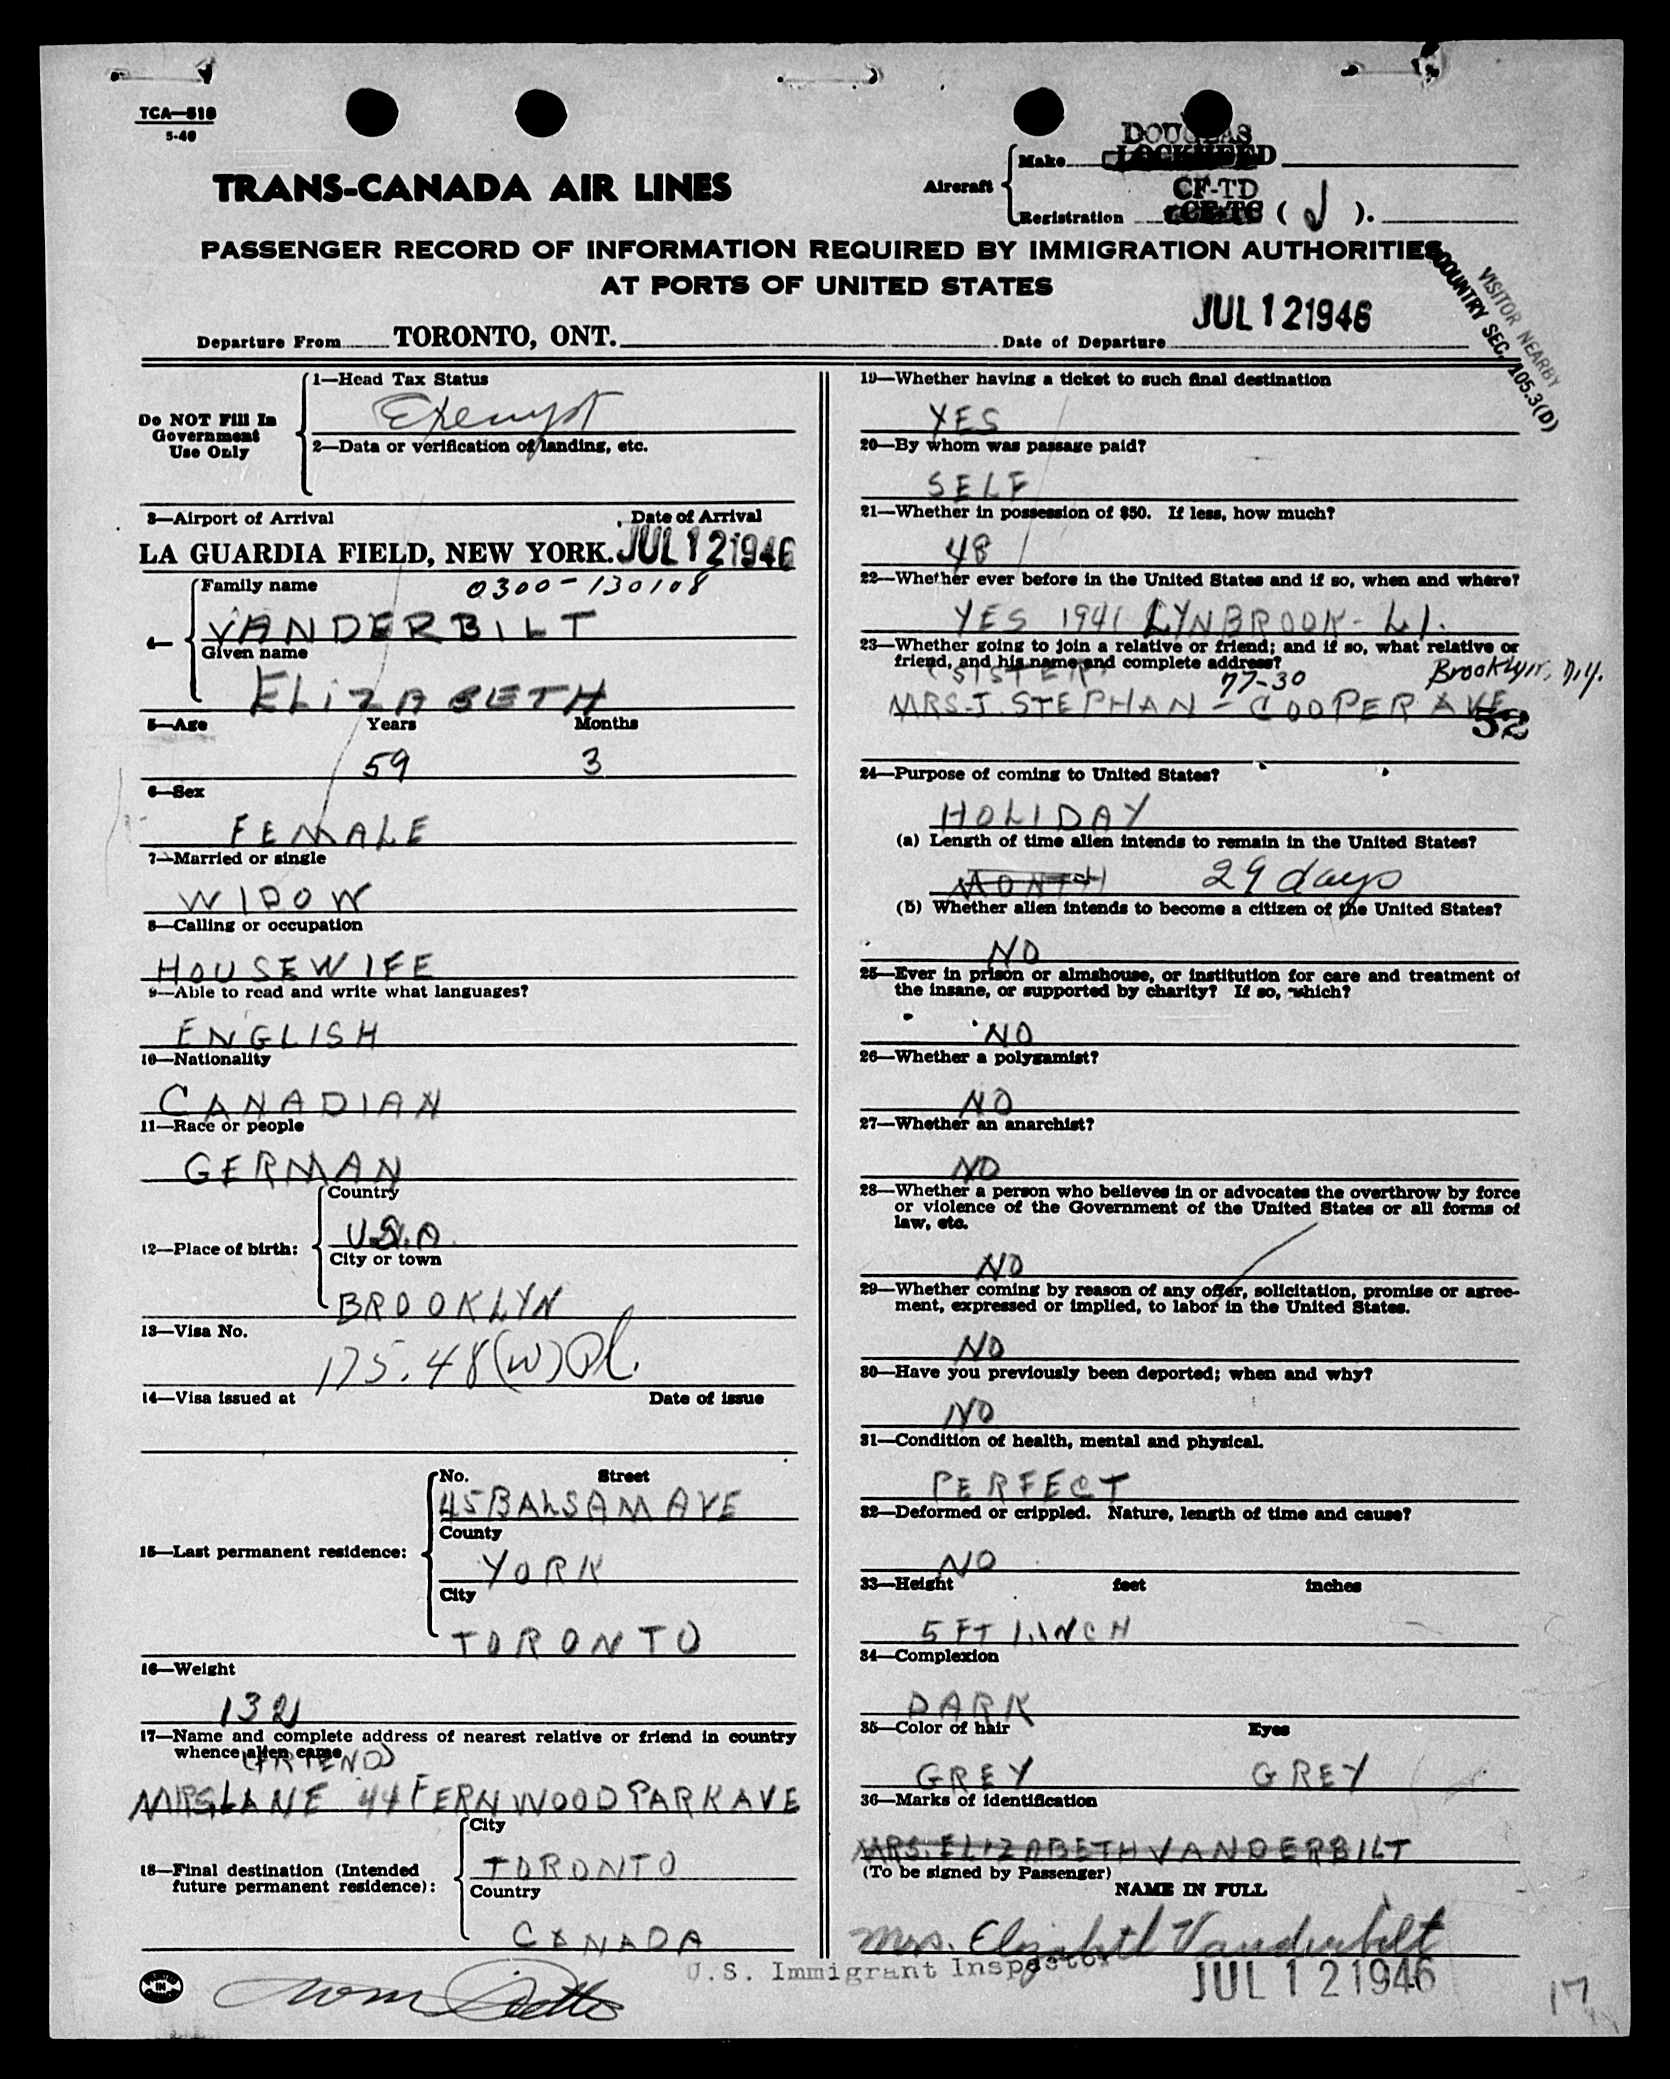 TCA—518
5-40
DOUGLAS
Make LOCKHEED
TRANS-CANADA AIR LINES
Aircraft
CF-TD
Registration CF-TC ( J ).
PASSENGER RECORD OF INFORMATION REQUIRED BY IMMIGRATION AUTHORITIES
AT PORTS OF UNITED STATES
VISITOR NEARBY
COUNTRY SEC./105.3(D)
Departure From TORONTO, ONT. Date of Departure JUL 12 1946
Do NOT Fill In
Government
Use Only
1—Head Tax Status
Exempt
2—Data or verification of landing, etc.
3—Airport of Arrival Date of Arrival
LA GUARDIA FIELD, NEW YORK. JUL 12 1946
4—
Family name 0300-130108
VANDERBILT
Given name
ELIZABETH
5—Age Years Months
59 3
6—Sex
FEMALE
7—Married or single
WIDOW
8—Calling or occupation
HOUSEWIFE
9—Able to read and write what languages?
ENGLISH
10—Nationality
CANADIAN
11—Race or people
GERMAN
12—Place of birth:
Country
U.S.A.
City or town
BROOKLYN
13—Visa No.
175.48(W)
14—Visa issued at Date of issue
15—Last permanent residence:
No. Street
45 BALSAM AVE
County
YORK
City
TORONTO
16—Weight
132
17—Name and complete address of nearest relative or friend in country
whence alien came
(FRIEND)
MRS LANE 44 FERNWOOD PARK AVE
18—Final destination (Intended
future permanent residence):
City
TORONTO
Country
CANADA
19—Whether having a ticket to such final destination
YES
20—By whom was passage paid?
SELF
21—Whether in possession of $50. If less, how much?
48
22—Whether ever before in the United States and if so, when and where?
YES 1941 LYNBROOK - L.I.
23—Whether going to join a relative or friend; and if so, what relative or
friend, and his name and complete address?
(SISTER) 77-30 Brooklyn, N.Y.
MRS. J. STEPHAN - COOPER AVE
52
24—Purpose of coming to United States?
HOLIDAY
(a) Length of time alien intends to remain in the United States?
MONTH 29 days
(b) Whether alien intends to become a citizen of the United States?
NO
25—Ever in prison or almshouse, or institution for care and treatment of
the insane, or supported by charity? If so, which?
NO
26—Whether a polygamist?
NO
27—Whether an anarchist?
NO
28—Whether a person who believes in or advocates the overthrow by force
or violence of the Government of the United States or all forms of
law, etc.
NO
29—Whether coming by reason of any offer, solicitation, promise or agree-
ment, expressed or implied, to labor in the United States.
NO
30—Have you previously been deported; when and why?
NO
31—Condition of health, mental and physical.
PERFECT
32—Deformed or crippled. Nature, length of time and cause?
NO
33—Height feet inches
5 FT 1 INCH
34—Complexion
DARK
35—Color of hair Eyes
GREY GREY
36—Marks of identification
MRS. ELIZABETH VANDERBILT
(To be signed by Passenger)
NAME IN FULL
Mrs. Elizabeth Vanderbilt
U.S. Immigrant Inspector
JUL 12 1946
17